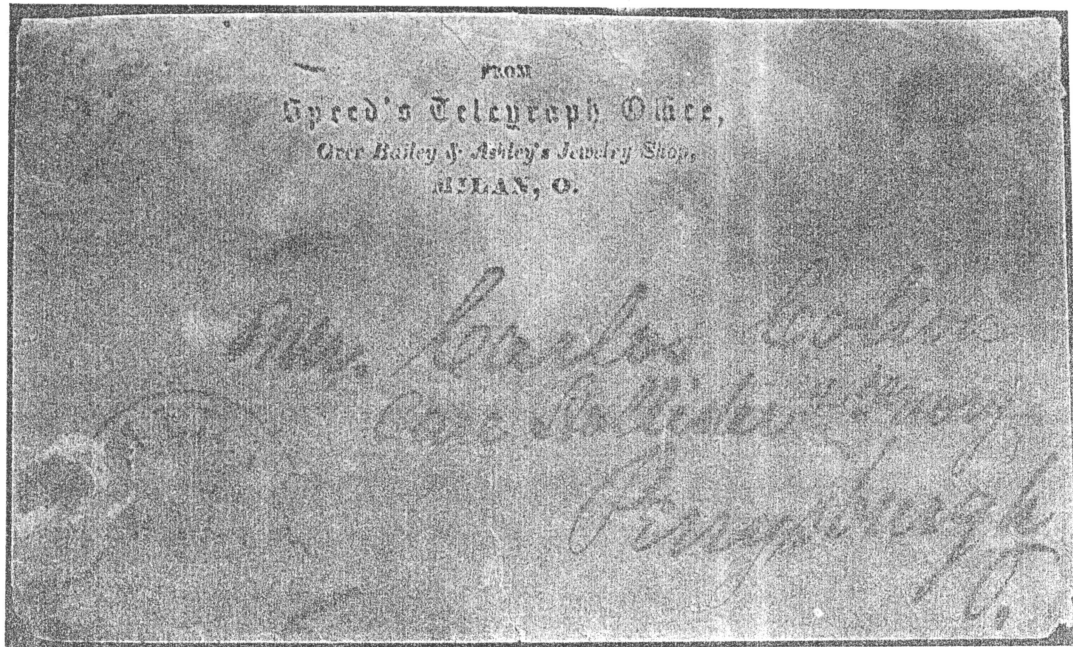 FROM
Speed's Telegraph Office,
Over Bailey & Ashley's Jewelry Shop,
MILAN, O.
Mr. Carlos Colton
Care Hollister
Perrysburgh
O.